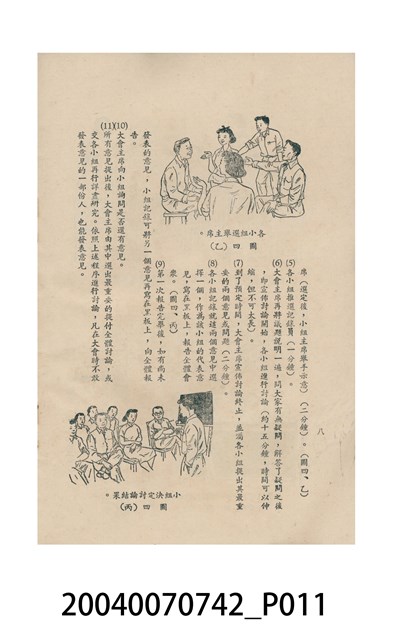 八
席（選定後，小組主席舉手示意）（二分鐘）。（圖四、乙）
(5)各小組推選記錄員（一分鐘）。
(6)大會主席再將議題說明一遍，問大家有無疑問，解答了疑問之後
，即宣佈討論開始，各小組進行討論（約十五分鐘，時間可以伸
縮，但不可太長）。
(7)到了預定時間，大會主席宣佈討論終止，並請各小組提出其最重
要的兩個意見或問題（二分鐘）。
(8)各小組記錄就這兩個意見中選
擇一個，作為該小組的代表意
見，寫在黑板上，報告全體會
眾。（圖四、丙）
(9)第一次報告完畢後，如有尚未
發表的意見，小組記錄可將另一個意見再寫在黑板上，向全體報
告。
(10)大會主席向小組詢問是否還有意見。
(11)所有意見提出後，大會主席由其中選出最重要的提付全體討論，或
交各小組再行詳盡研究。依照上述程序進行討論，凡在大會時不放
發表意見的一部份人，也能發表意見。
各小組選舉主席。
圖四（乙）
小組決定討論結果。
圖四（丙）
20040070742_P011